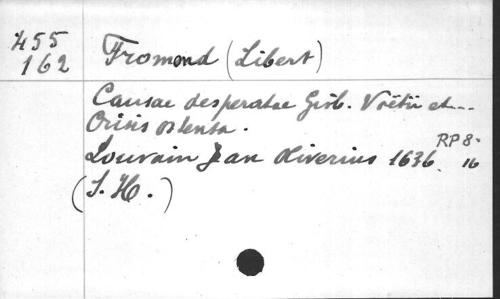 455
162
Fromond (Libert)
Causae desperatae Gisb. Voëtii et...
Crisis ostensa.
Louvain Jan Oliverius 1636. RP8-
16
(S. H.)